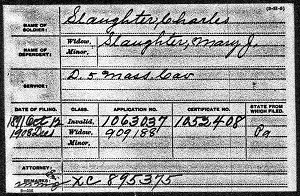 (3-11-8)
NAME OF SOLDIER: Slaughter, Charles
NAME OF DEPENDENT: Widow, Slaughter, Mary J.
Minor,
SERVICE: D. 5 Mass. Cav
DATE OF FILING. CLASS. APPLICATION NO. CERTIFICATE NO. STATE FROM WHICH FILED.
1891 Oct 12 Invalid, 1063037 1053408
1908 Dec Widow, 909188 Pa
Minor,
ATTORNEY:
REMARKS: XC 895375